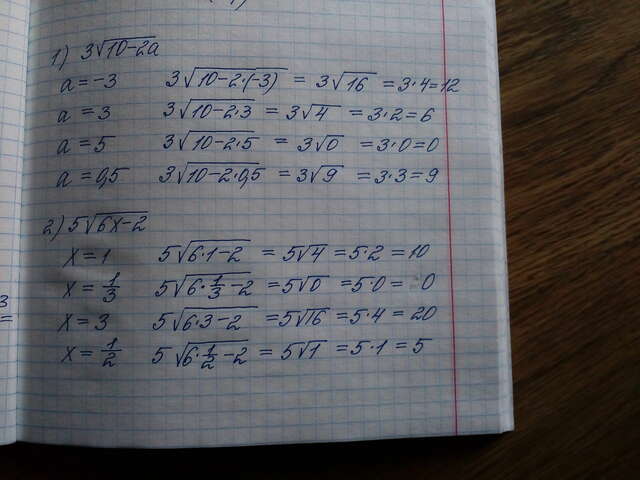 1) 3√(10-2a)
a = -3 3√(10-2·(-3)) = 3√16 = 3·4=12
a = 3 3√(10-2·3) = 3√4 = 3·2=6
a = 5 3√(10-2·5) = 3√0 = 3·0=0
a = 0,5 3√(10-2·0,5) = 3√9 = 3·3=9
2) 5√(6x-2)
x = 1 5√(6·1-2) = 5√4 = 5·2 = 10
x = 1/3 5√(6·1/3-2) = 5√0 = 5·0 = 0
x = 3 5√(6·3-2) = 5√16 = 5·4 = 20
x = 1/2 5√(6·1/2-2) = 5√1 = 5·1 = 5